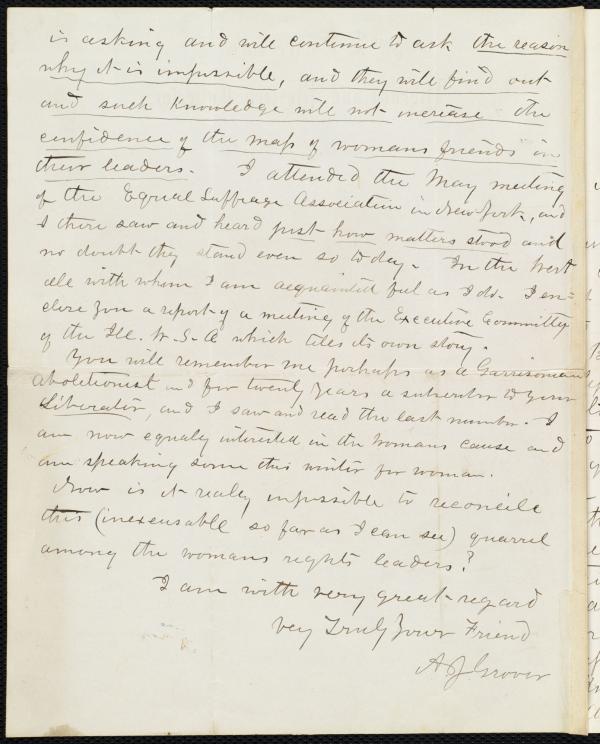 is asking and will continue to ask the reason
why it is impossible, and they will find out
and such knowledge will not increase the
confidence of the mass of womans friends in
their leaders. I attended the May meeting
of the Equal Suffrage Association in New York, and
I there saw and heard just how matters stood and
no doubt they stand even so to day. In the West
all with whom I am acquainted feel as I do. I en=
close you a report of a meeting of the Executive Committee
of the Ill. W. S. A which tells its own story.
You will remember me perhaps as a Garrisonian
abolitionist and for twenty years a subscriber to your
Liberator, and I saw and read the last number. I
am now equally interested in the womans cause and
am speaking some this winter for woman.
Now is it really impossible to reconcile
this (inexcusable so far as I can see) quarrel
among the womans rights leaders?
I am with very great regard
very Truly Your Friend
A J Grover